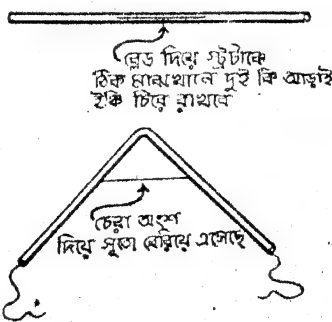 ব্লেড দিয়ে স্ট্রটাকে
ঠিক মাঝখানে দুই কি আড়াই
ইঞ্চি চিরে রাখবে
চেরা অংশ
দিয়ে সুতো বেরিয়ে এসেছে